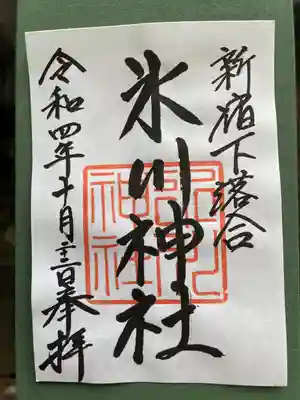 新宿下落合
氷川神社
令和四年十月二十三日奉拝